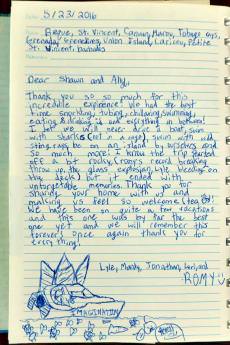 5/23/2016
Bequia, St. Vincent, Canuan, Mayreau, Tobago Cays,
Grenada, Grenadines, Union Island, Petite
St. Vincent, barbados
Dear Shawn and Ally,
Thank you so so much for this
incredible experience! We had the best
time snorkling, tubing, chillaxing, swimming,
eating & drinking & and everything in between!
I bet we will never drive a boat, swim
with sharks (not in a cage), swim with wild
sting rays, be on an island by ourselves and
so much more! I know the trip started
off a bit rocky (romy's record breaking
throw up, the glass explosion, Lyle bleeding on
the deck) but it ended with
unforgetable memories. Thank you for
sharing your home with us and
making us feel so welcome
We have been on quite a few vacations
and this one was by far the best
one yet and we will remember this
forever! Once again thank you for
everything!
Lyle, Mandy, Jonathan, and
ROMY
IMAGINATION